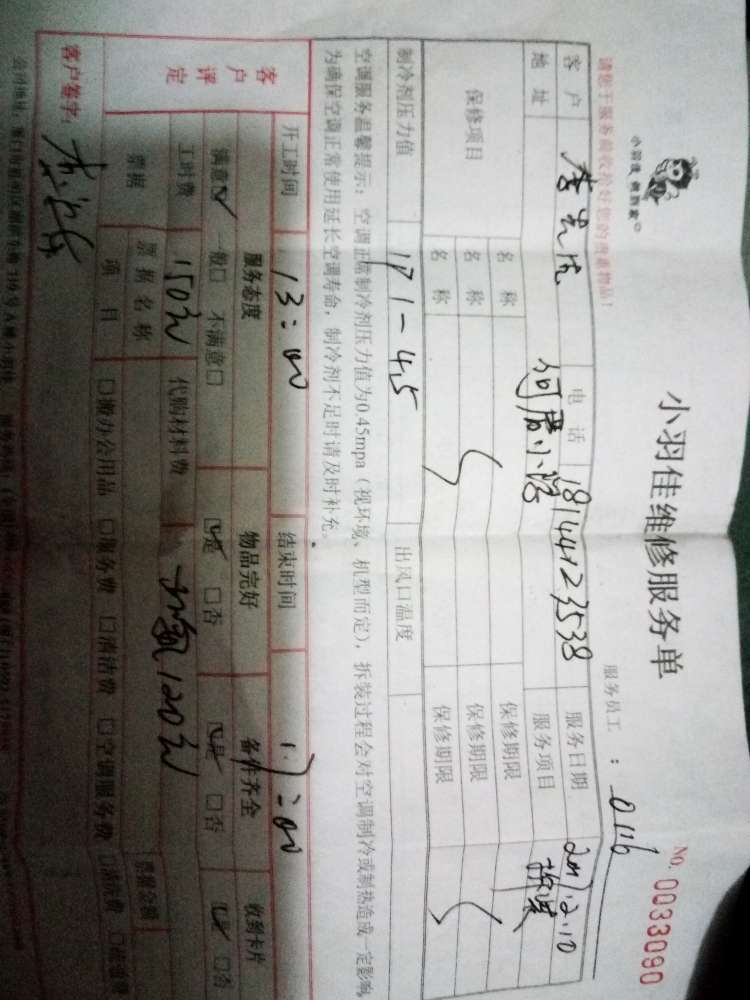 小羽佳 做到家
小羽佳维修服务单
No. 0033090
请您于服务前收拾好您的贵重物品！
服务员工： 0116
客户 电话 18144123538 服务日期 2017.2.10
地址 何厝小路 服务项目
保修项目 名称 保修期限
名称 保修期限
名称 保修期限
制冷剂压力值 出风口温度
空调服务温馨提示：空调正常制冷剂压力值为0.45mpa（视环境、机型而定），拆装过程会对空调制冷或制热造成一定影响，
为确保空调正常使用延长空调寿命，制冷剂不足时请及时补充。
开工时间 13:00 结束时间 17:00
客户评定 服务态度 物品完好 备件齐全 收到卡片
满意☑ 一般□ 不满意□ ☑是 □否 ☑是 □否 ☑是 □否
工时费 150元 代购材料费 加氟120元
票据 票据名称 票据金额
项目 □办公用品 □服务费 □清洁费 □空调服务费
客户签字：